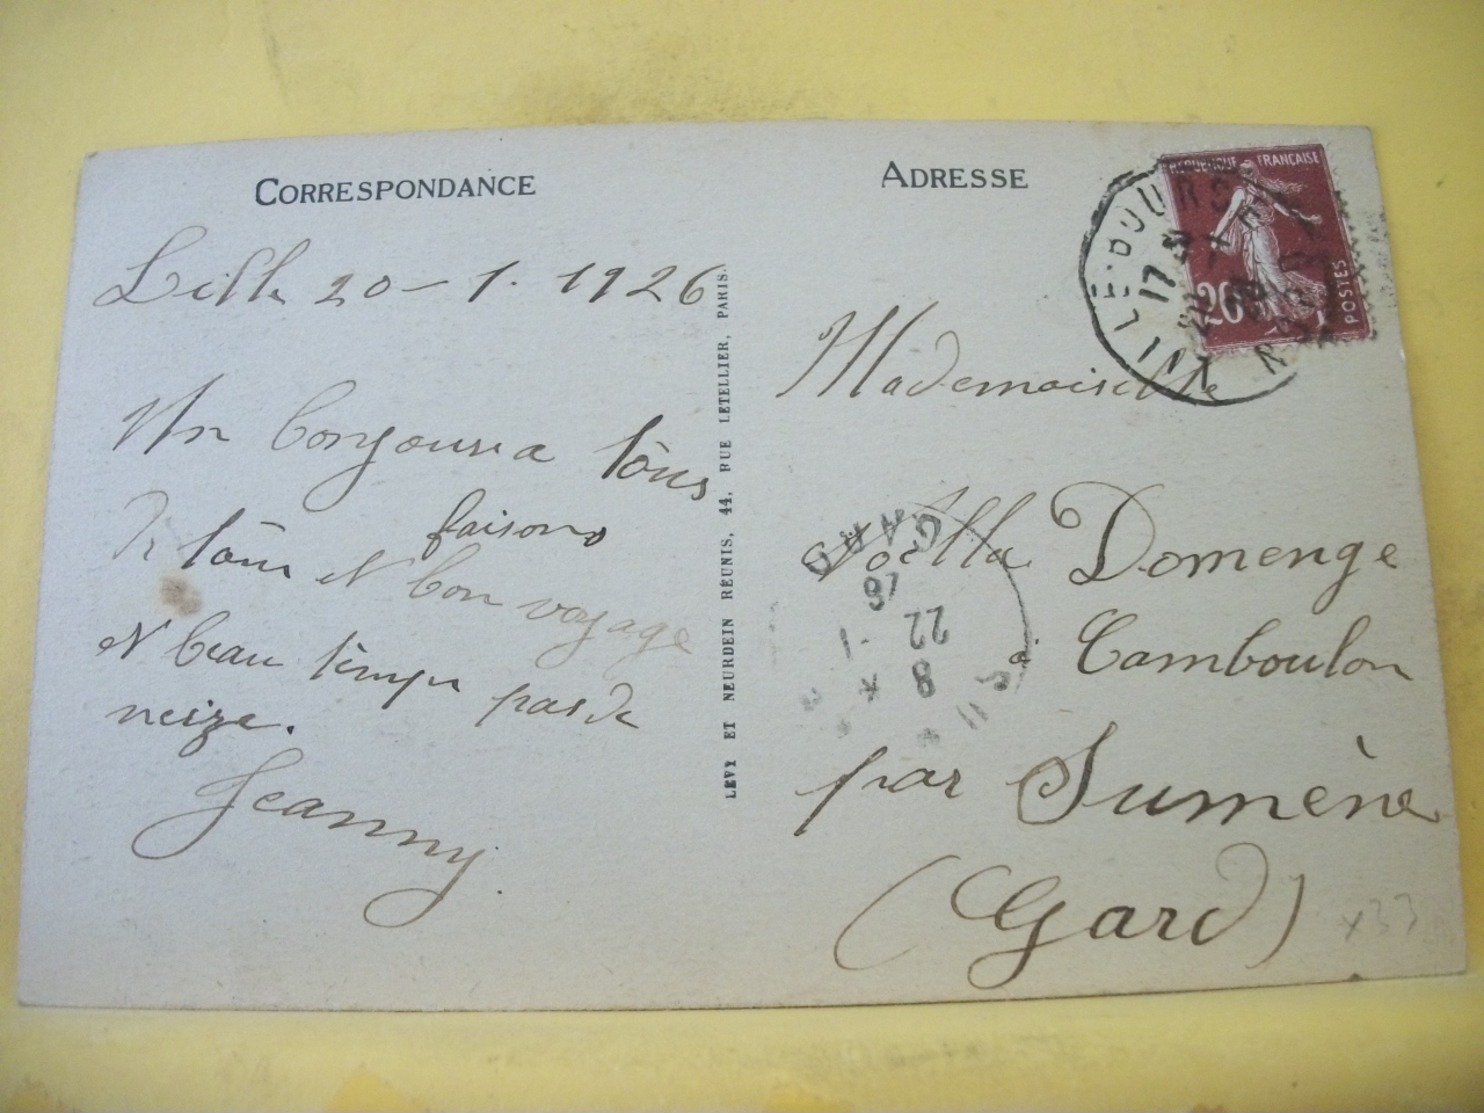 CORRESPONDANCE
Lille 20 - 1. 1926
Un bonjour a tous
De tous faisons
et bon voyage
et beau temps pas de
neize.
Jeanny.
LÉVY ET NEURDEIN RÉUNIS, 44, RUE LETELLIER, PARIS.
ADRESSE
RÉPUBLIQUE FRANÇAISE
20
POSTES
LILLE BOURSE
17
NORD
Mademoiselle
Noëlla Domenge
a Camboulon
par Sumène
(Gard)
GARD
18
22 - 1
8 *
x33